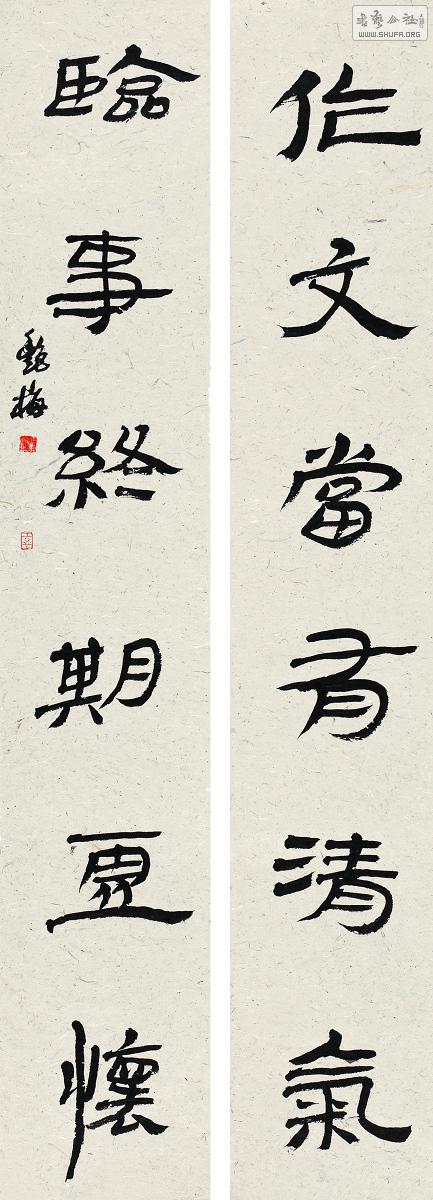 书艺公社
WWW.SHUFA.ORG
作文當有清氣
臨事終期虛懷
梅